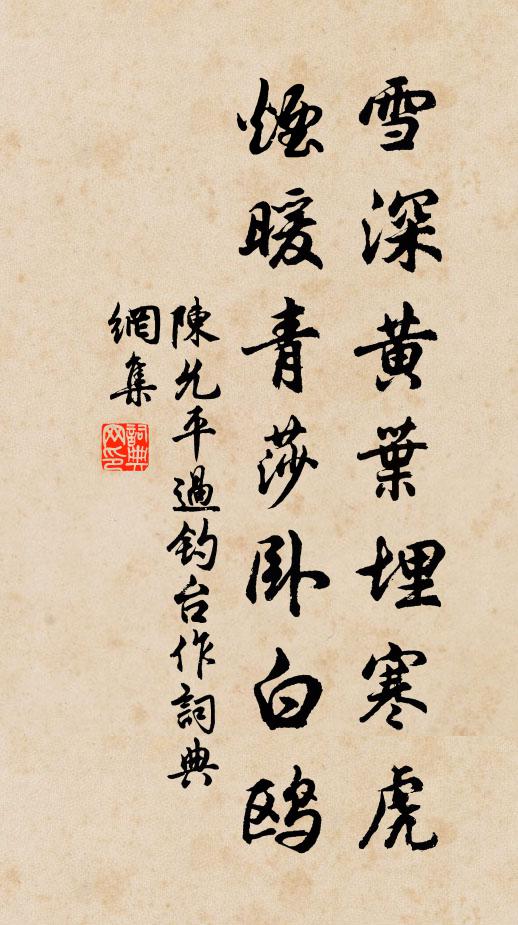 雪深黄葉埋寒虎
煙暖青莎卧白鸥
陳允平過釣台作詞典
網集
詞典
网印